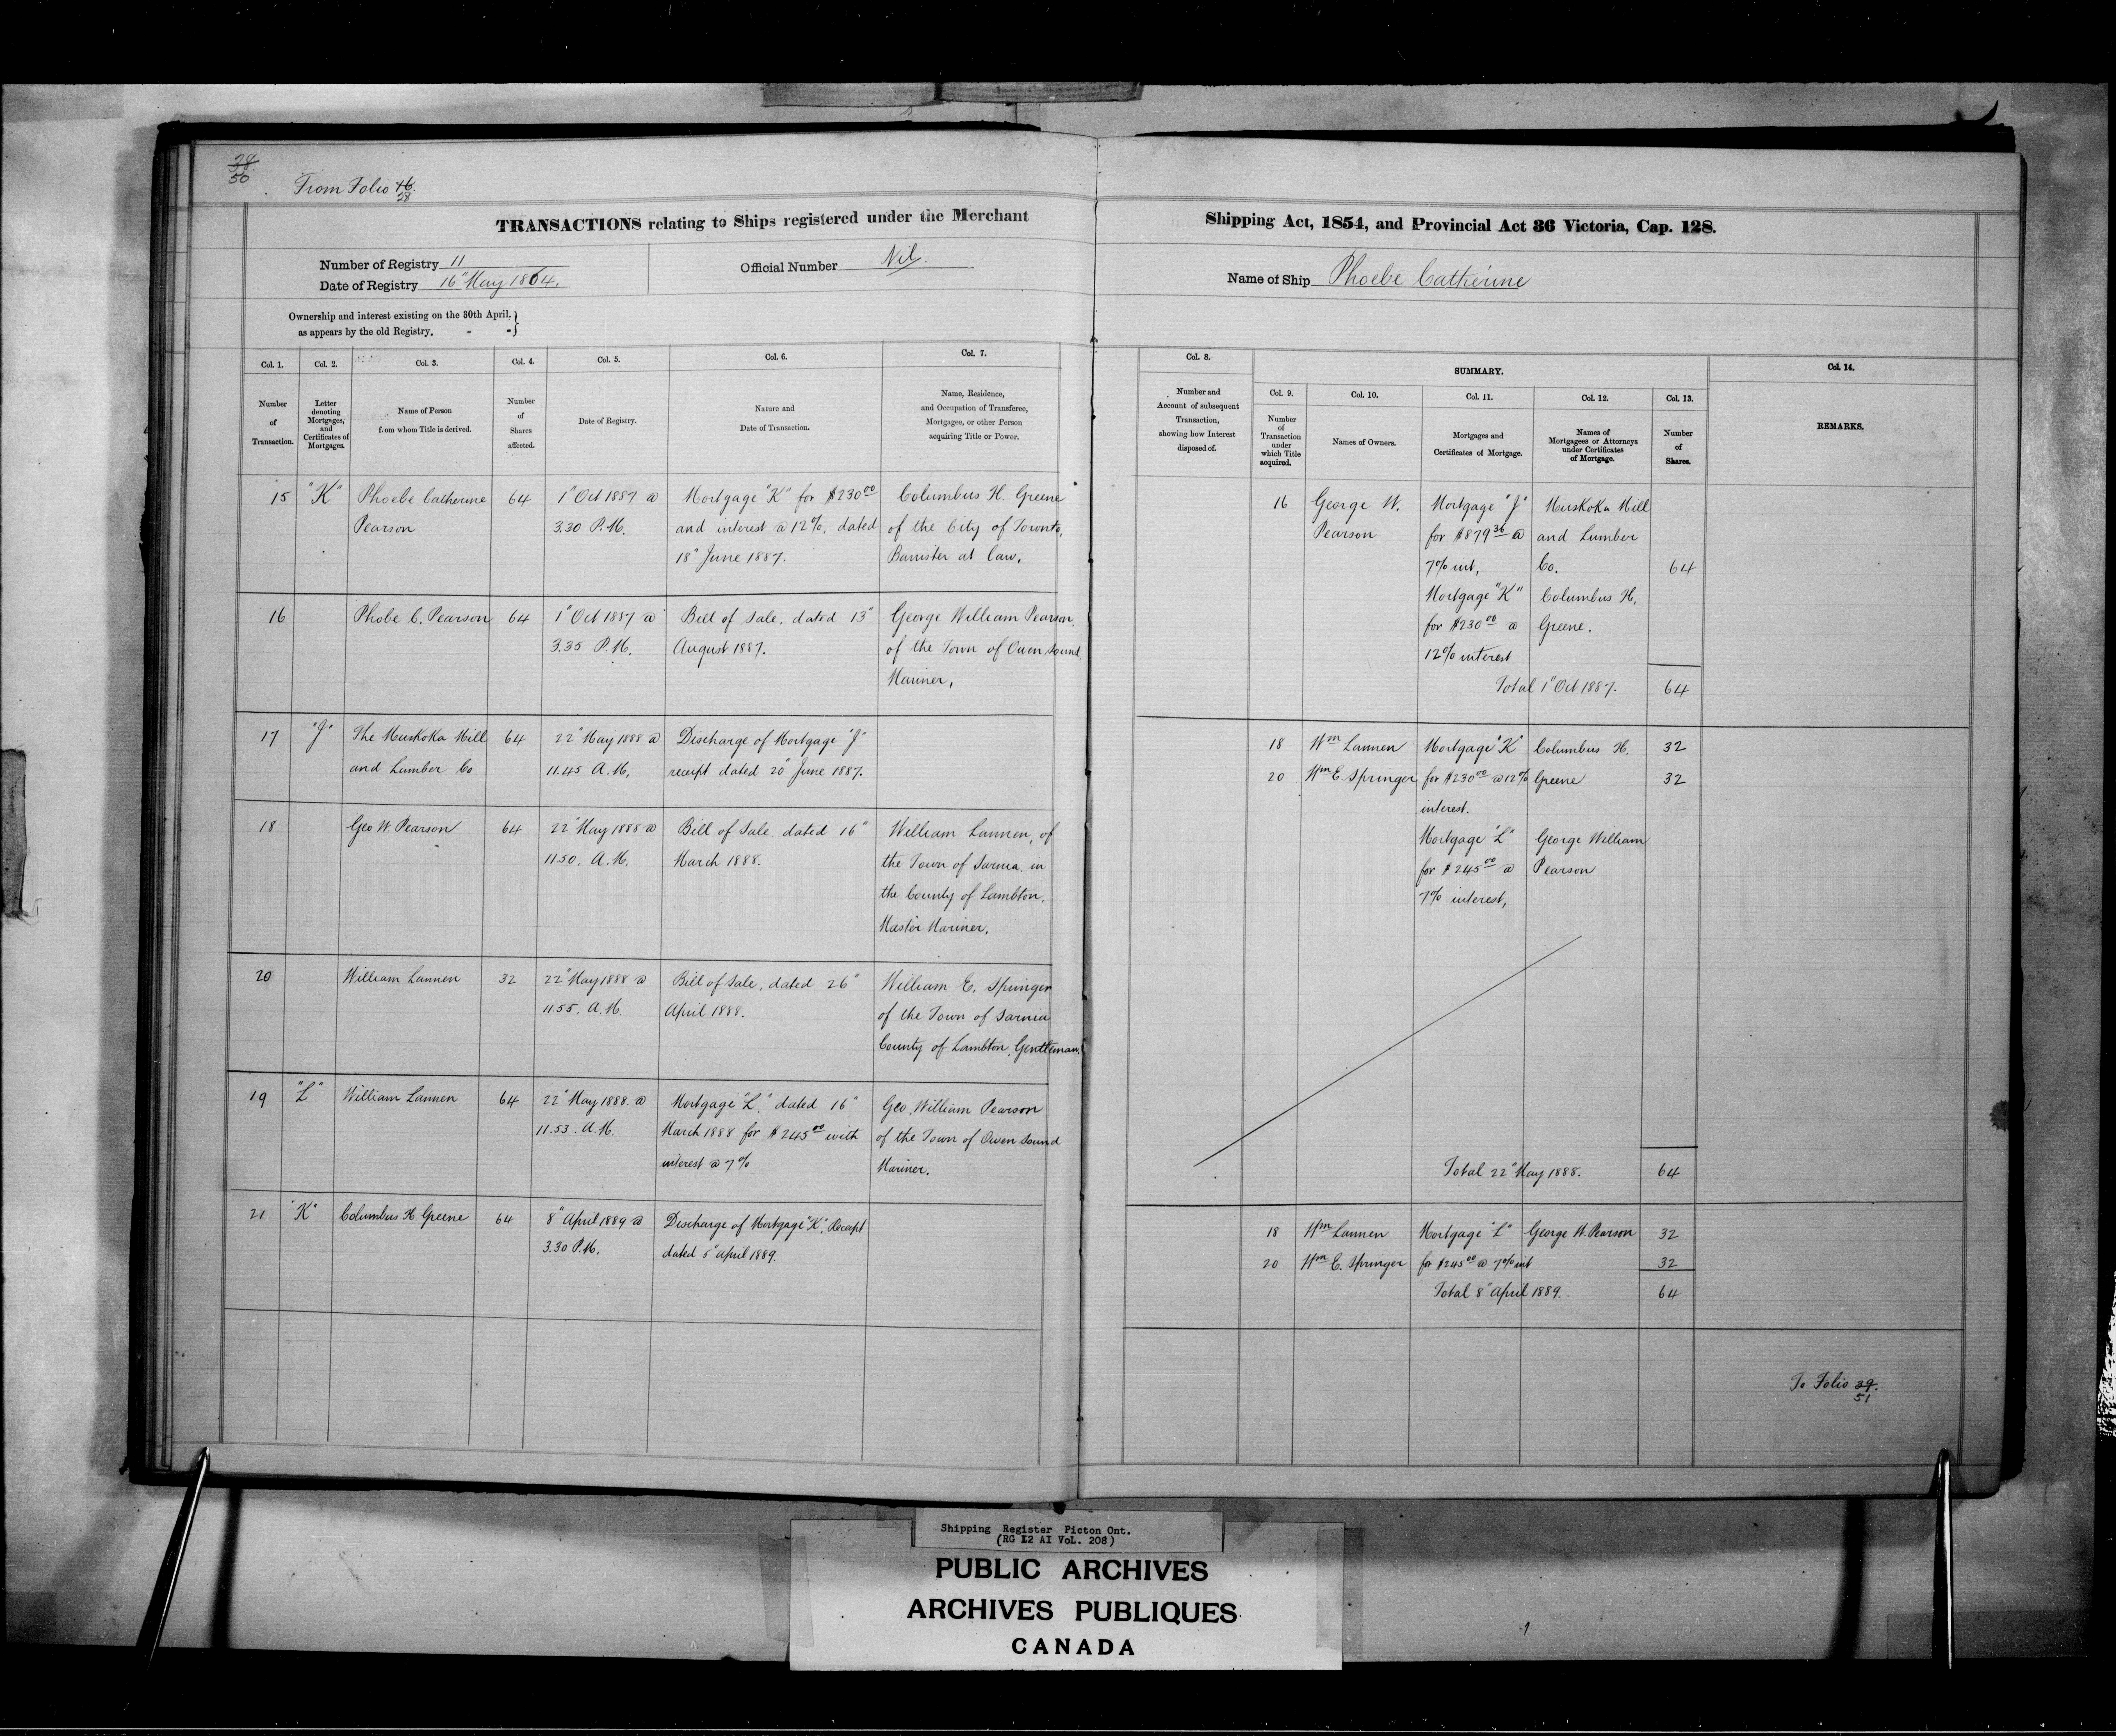 38
50
From Folio 46.
28
TRANSACTIONS relating to Ships registered under the Merchant
Shipping Act, 1854, and Provincial Act 36 Victoria, Cap. 128.
Number of Registry 11
Date of Registry 16" May 1864.
Official Number Nil.
Name of Ship Phoebe Catherine
Ownership and interest existing on the 30th April,
as appears by the old Registry. - -
Col. 1.
Number
of
Transaction.
Col. 2.
Letter
denoting
Mortgages,
and
Certificates of
Mortgages.
Col. 3.
Name of Person
from whom Title is derived.
Col. 4.
Number
of
Shares
affected.
Col. 5.
Date of Registry.
Col. 6.
Nature and
Date of Transaction.
Col. 7.
Name, Residence,
and Occupation of Transferee,
Mortgagee, or other Person
acquiring Title or Power.
Col. 8.
Number and
Account of subsequent
Transaction,
showing how Interest
disposed of.
SUMMARY.
Col. 9.
Number
of
Transaction
under
which Title
acquired.
Col. 10.
Names of Owners.
Col. 11.
Mortgages and
Certificates of Mortgage.
Col. 12.
Names of
Mortgagees or Attorneys
under Certificates
of Mortgage.
Col. 13.
Number
of
Shares.
Col. 14.
REMARKS.
15 "K" Phoebe Catherine 64 1" Oct 1887 @ Mortgage "K" for $230 00 Columbus H. Greene
Pearson 3.30 P.M. and interest @ 12%. dated of the City of Toronto,
18" June 1887. Barrister at Law,
16 Phobe C. Pearson 64 1" Oct 1887 @ Bill of Sale. dated 13" George William Pearson,
3.35 P.M. August 1887. of the Town of Owen Sound,
Mariner,
17 "J" The Muskoka Mill 64 22" May 1888 @ Discharge of Mortgage "J"
and Lumber Co 11.45 A.M. receipt dated 20" June 1887.
18 Geo W. Pearson 64 22" May 1888 @ Bill of Sale. dated 16" William Lannen, of
11.50. A.M. March 1888. the Town of Sarnia. in
the County of Lambton.
Master Mariner.
20 William Lannen 32 22" May 1888 @ Bill of Sale, dated 26" William E. Springer
11.55. A.M. April 1888. of the Town of Sarnia
County of Lambton, Gentleman.
19 "L" William Lannen 64 22" May 1888. @ Mortgage "L," dated 16" Geo. William Pearson
11.53. A.M. March 1888 for $245 00 with of the Town of Owen Sound
interest @ 7% Mariner.
21 "K" Columbus H. Greene 64 8" April 1889 @ Discharge of Mortgage "K", Receipt
3.30 P.M. dated 5" April 1889.
16 George W. Mortgage "J" Muskoka Mill
Pearson for $879 36 @ and Lumber
7% int, Co. 64
Mortgage "K" Columbus H.
for $230 00 @ Greene.
12% interest
Total 1" Oct 1887. 64
18 Wm Lannen Mortgage "K" Columbus H. 32
20 Wm E. Springer for $230 00 @ 12% Greene 32
interest.
Mortgage "L" George William
for $245 00 @ Pearson
7% interest,
Total 22" May 1888. 64
18 Wm Lannen Mortgage "L" George W. Pearson 32
20 Wm E. Springer for $245 00 @ 7% int 32
Total 8" April 1889. 64
To Folio 39.
51
Shipping Register Picton Ont.
(RG 12 AI VoL. 208)
PUBLIC ARCHIVES
ARCHIVES PUBLIQUES
CANADA